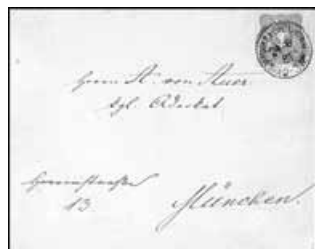 Herrn A. von Auer
kgl. Advokat
Herrnstraße
13.
München.